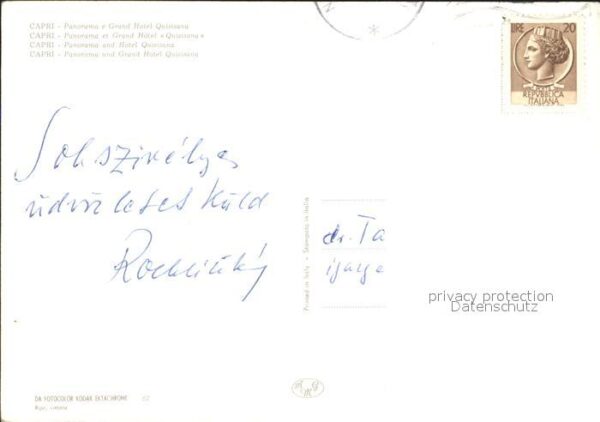 CAPRI - Panorama e Grand Hotel Quisisana
CAPRI - Panorama et Grand Hôtel «Quisisana»
CAPRI - Panorama and Hotel Quisisana
CAPRI - Panorama und Grand Hotel Quisisana
LIRE 20
REPVBBLICA
ITALIANA
Sok szivélyes
üdvözletet küld
Printed in Italy - Stampato in Italia
dr. Ta
igazga
privacy protection
Datenschutz
DA FOTOCOLOR KODAK EKTACHROME 62
Ripr. vietata